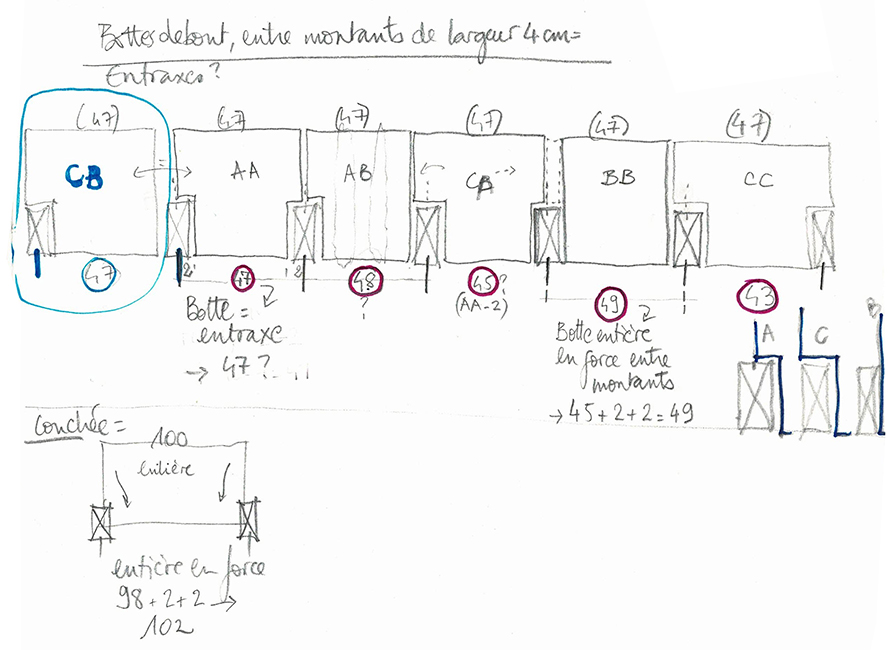 Bottes debout, entre montants de largeur 4 cm =
Entraxes ?
(47) (47) (47) (47) (47) (47)
CB AA AB CA BB CC
47 2 47 2 48 45? 49 43
?
(AA-2)
Botte =
entraxe
→ 47 ?
Botte entière
en force entre
montants
→ 45 + 2 + 2 = 49
A C B
Couchée =
100
entière
entière en force
98 + 2 + 2 →
102